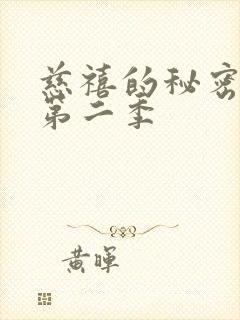 慈禧的秘密
第二季
黄暉